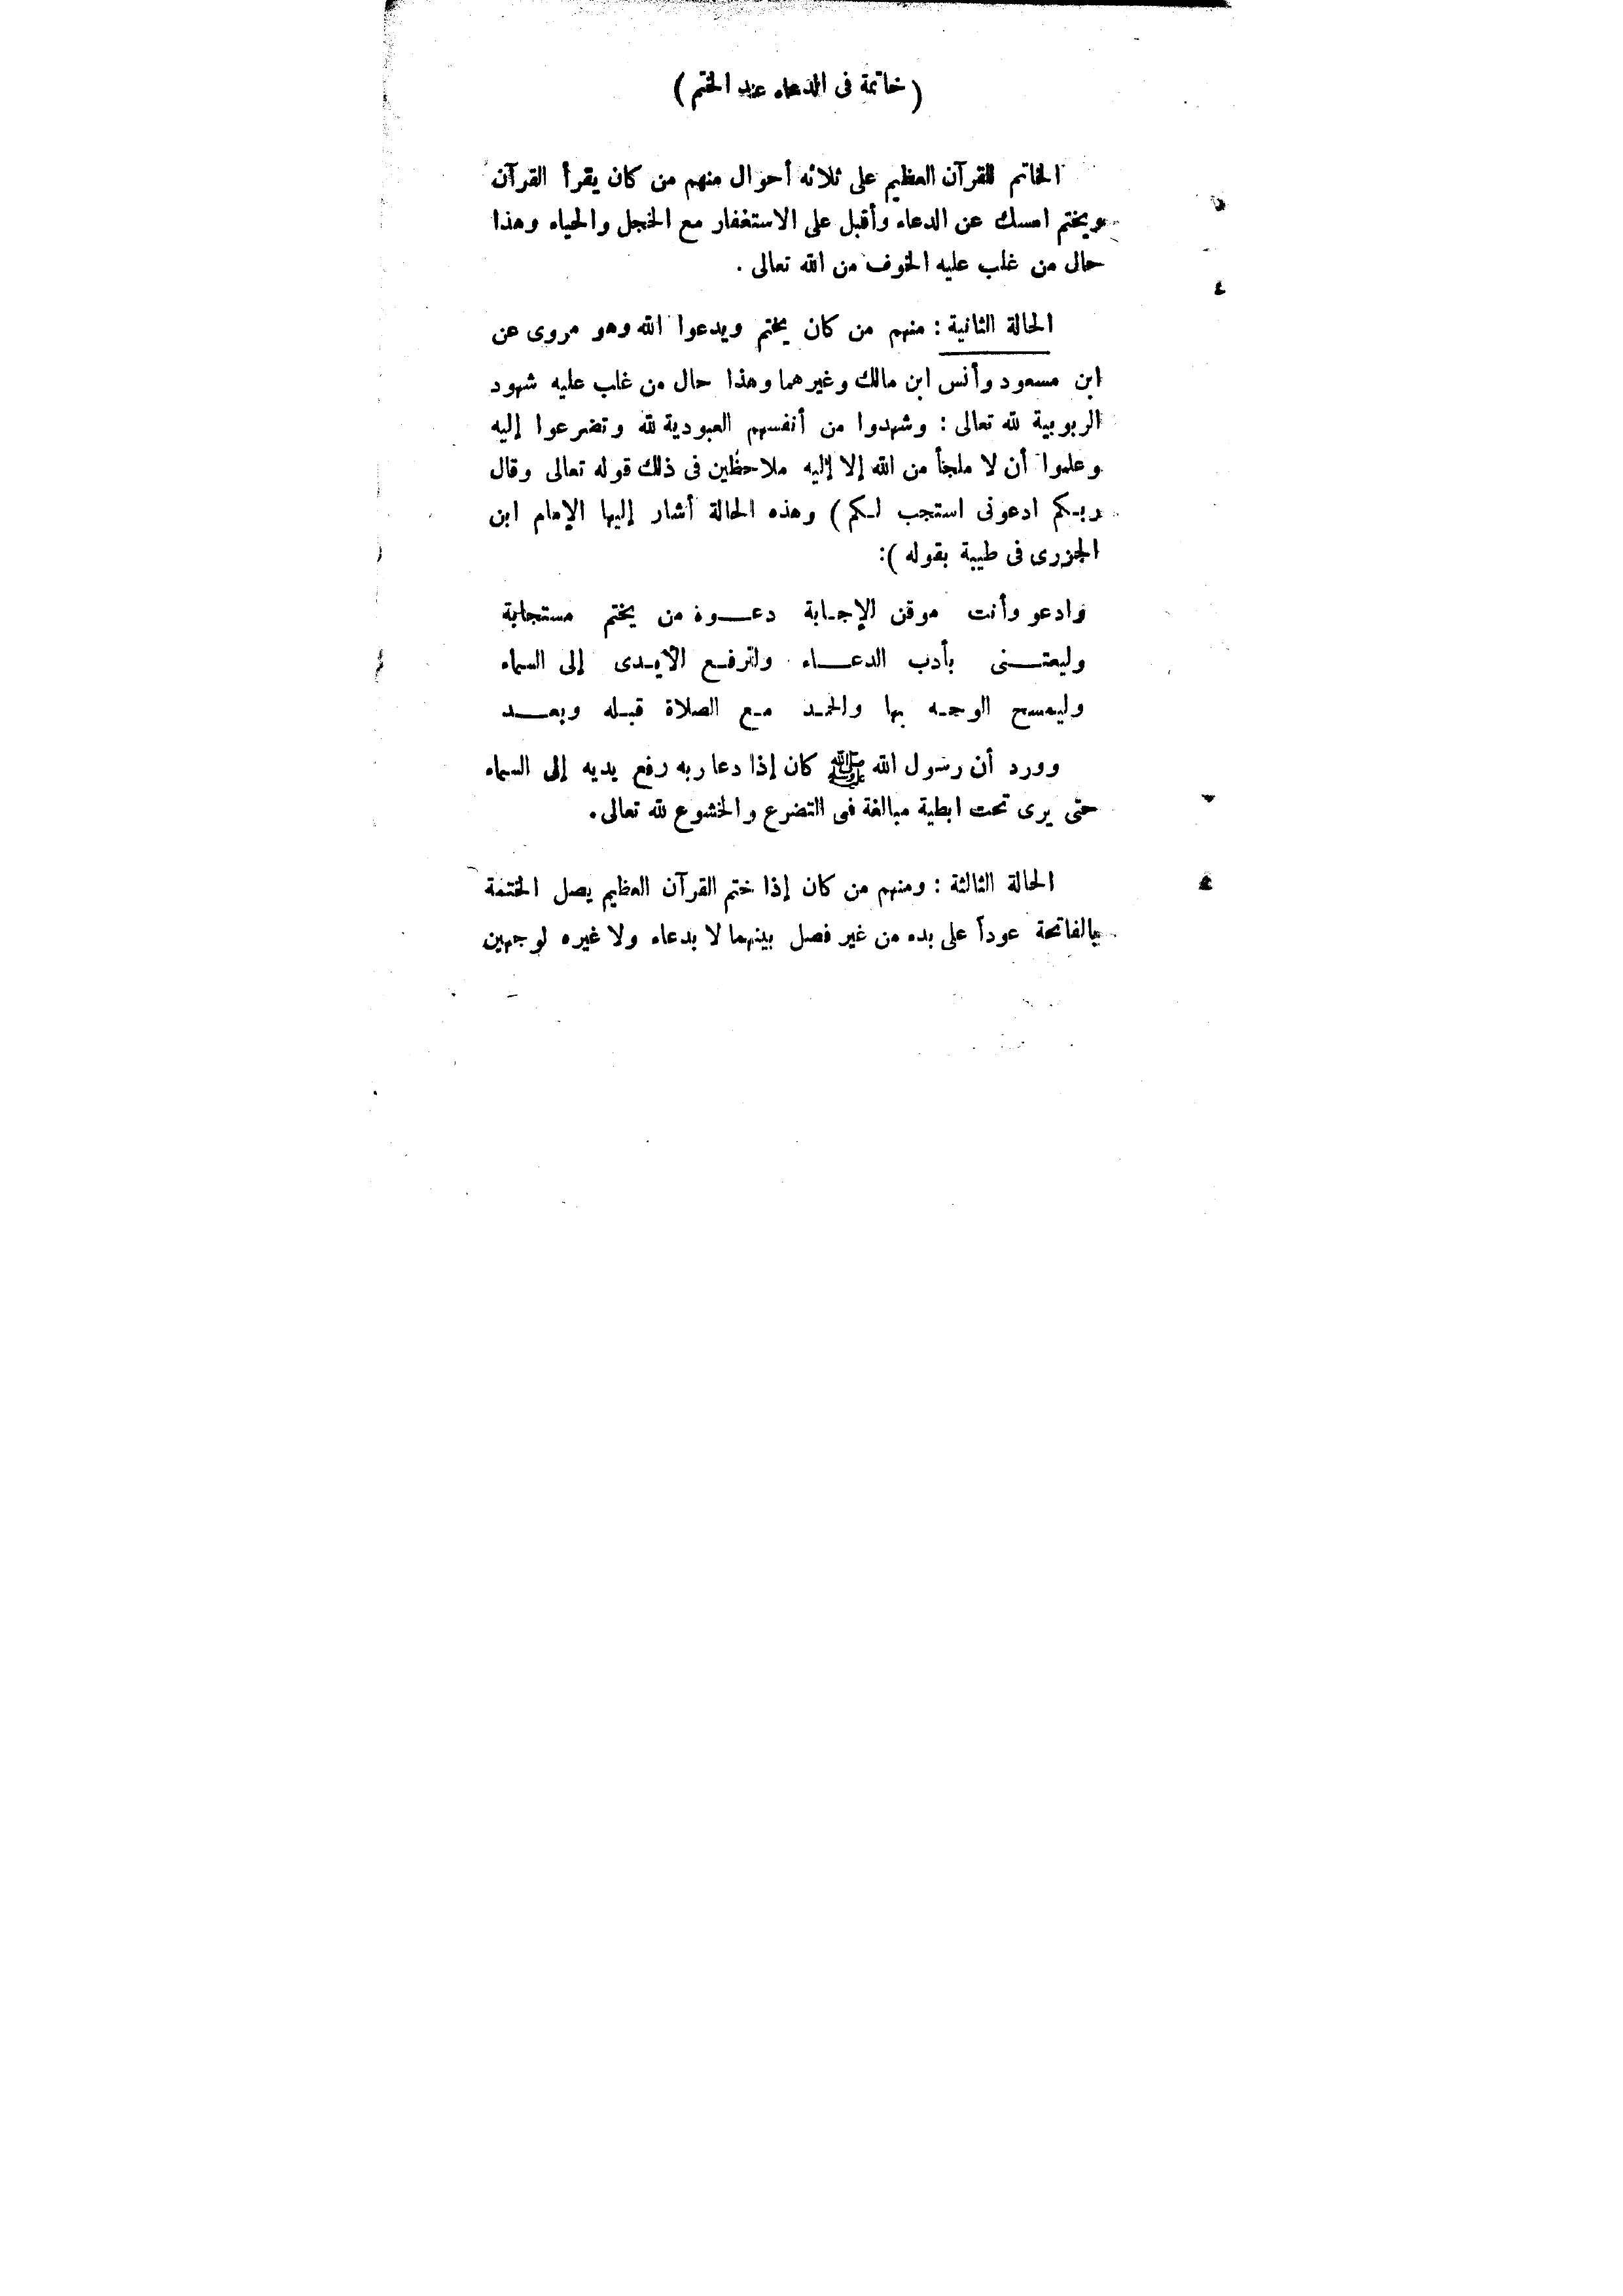 ( خاتمة فى الدعاء عند الختم )
الخاتم للقرآن العظيم على ثلاثه أحوال منهم من كان يقرأ القرآن
ويختم امسك عن الدعاء وأقبل على الاستغفار مع الخجل والحياء وهذا
حال من غلب عليه الخوف من الله تعالى .
الحالة الثانية : منهم من كان يختم ويدعوا الله وهو مروى عن
ابن مسعود وأنس ابن مالك وغيرهما وهذا حال من غلب عليه شهود
الربوبية لله تعالى : وشهدوا من أنفسهم العبودية لله وتضرعوا إليه
وعلموا أن لا ملجأ من الله إلا إليه ملاحظين فى ذلك قوله تعالى وقال
ربـكم ادعونى استجب لـكم ) وهذه الحالة أشار إليها الإمام ابن
الجزرى فى طيبة بقوله ):
وادعو وأنت موقن الإجـابة دعـــوة من يختم مستجابة
وليعتـــنى بأدب الدعـــاء ولترفـع الأيـدى إلى السماء
وليمسح الوجـه بها والحمـد مـع الصلاة قبـله وبعـــد
وورد أن رسول الله ﷺ كان إذا دعا ربه رفع يديه إلى السماء
حتى يرى تحت ابطية مبالغة فى التضرع والخشوع لله تعالى.
الحالة الثالثة : ومنهم من كان إذا ختم القرآن العظيم يصل الختمة
بالفاتحة عوداً على بدء من غير فصل بينهما لا بدعاء ولا غيره لوجهين